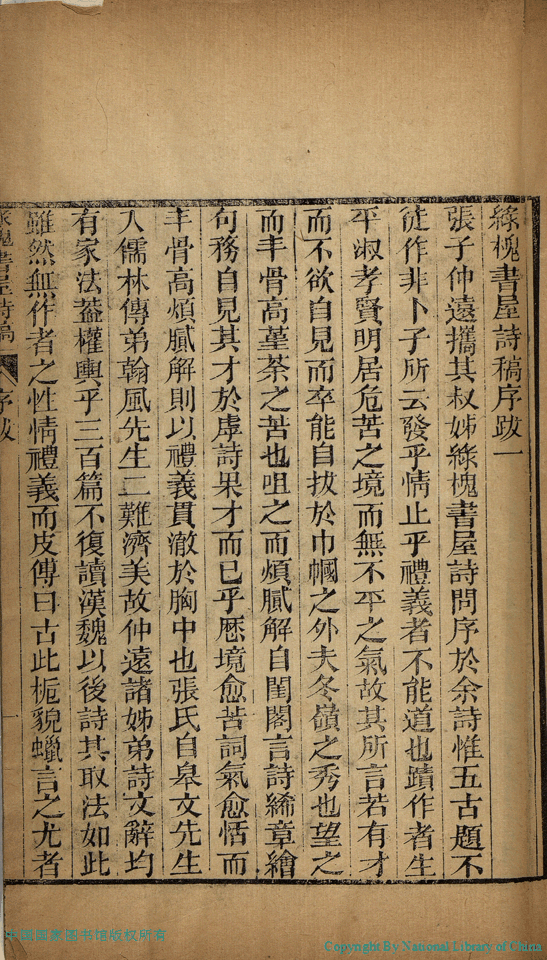 綠槐書屋詩稿序跋一
張子仲遠攜其叔姊綠槐書屋詩問序於余詩惟五古題不
徒作非卜子所云發乎情止乎禮義者不能道也蹟作者生
平淑孝賢明居危苦之境而無不平之氣故其所言若有才
而不欲自見而卒能自拔於巾幗之外夫冬嶺之秀也望之
而丰骨高堇荼之苦也咀之而煩膩解自閨閣言詩絺章繪
句務自見其才於虖詩果才而已乎厯境愈苦詞氣愈恬而
丰骨高煩膩解則以禮義貫澈於胸中也張氏自皋文先生
入儒林傳弟翰風先生二難濟美故仲遠諸姊弟詩文辭均
有家法葢權輿乎三百篇不復讀漢魏以後詩其取法如此
雖然無作者之性情禮義而皮傅曰古此梔貌蠟言之尤者
綠槐書屋詩稿
序跋
一
中国国家图书馆版权所有
Copyright By National Library of China